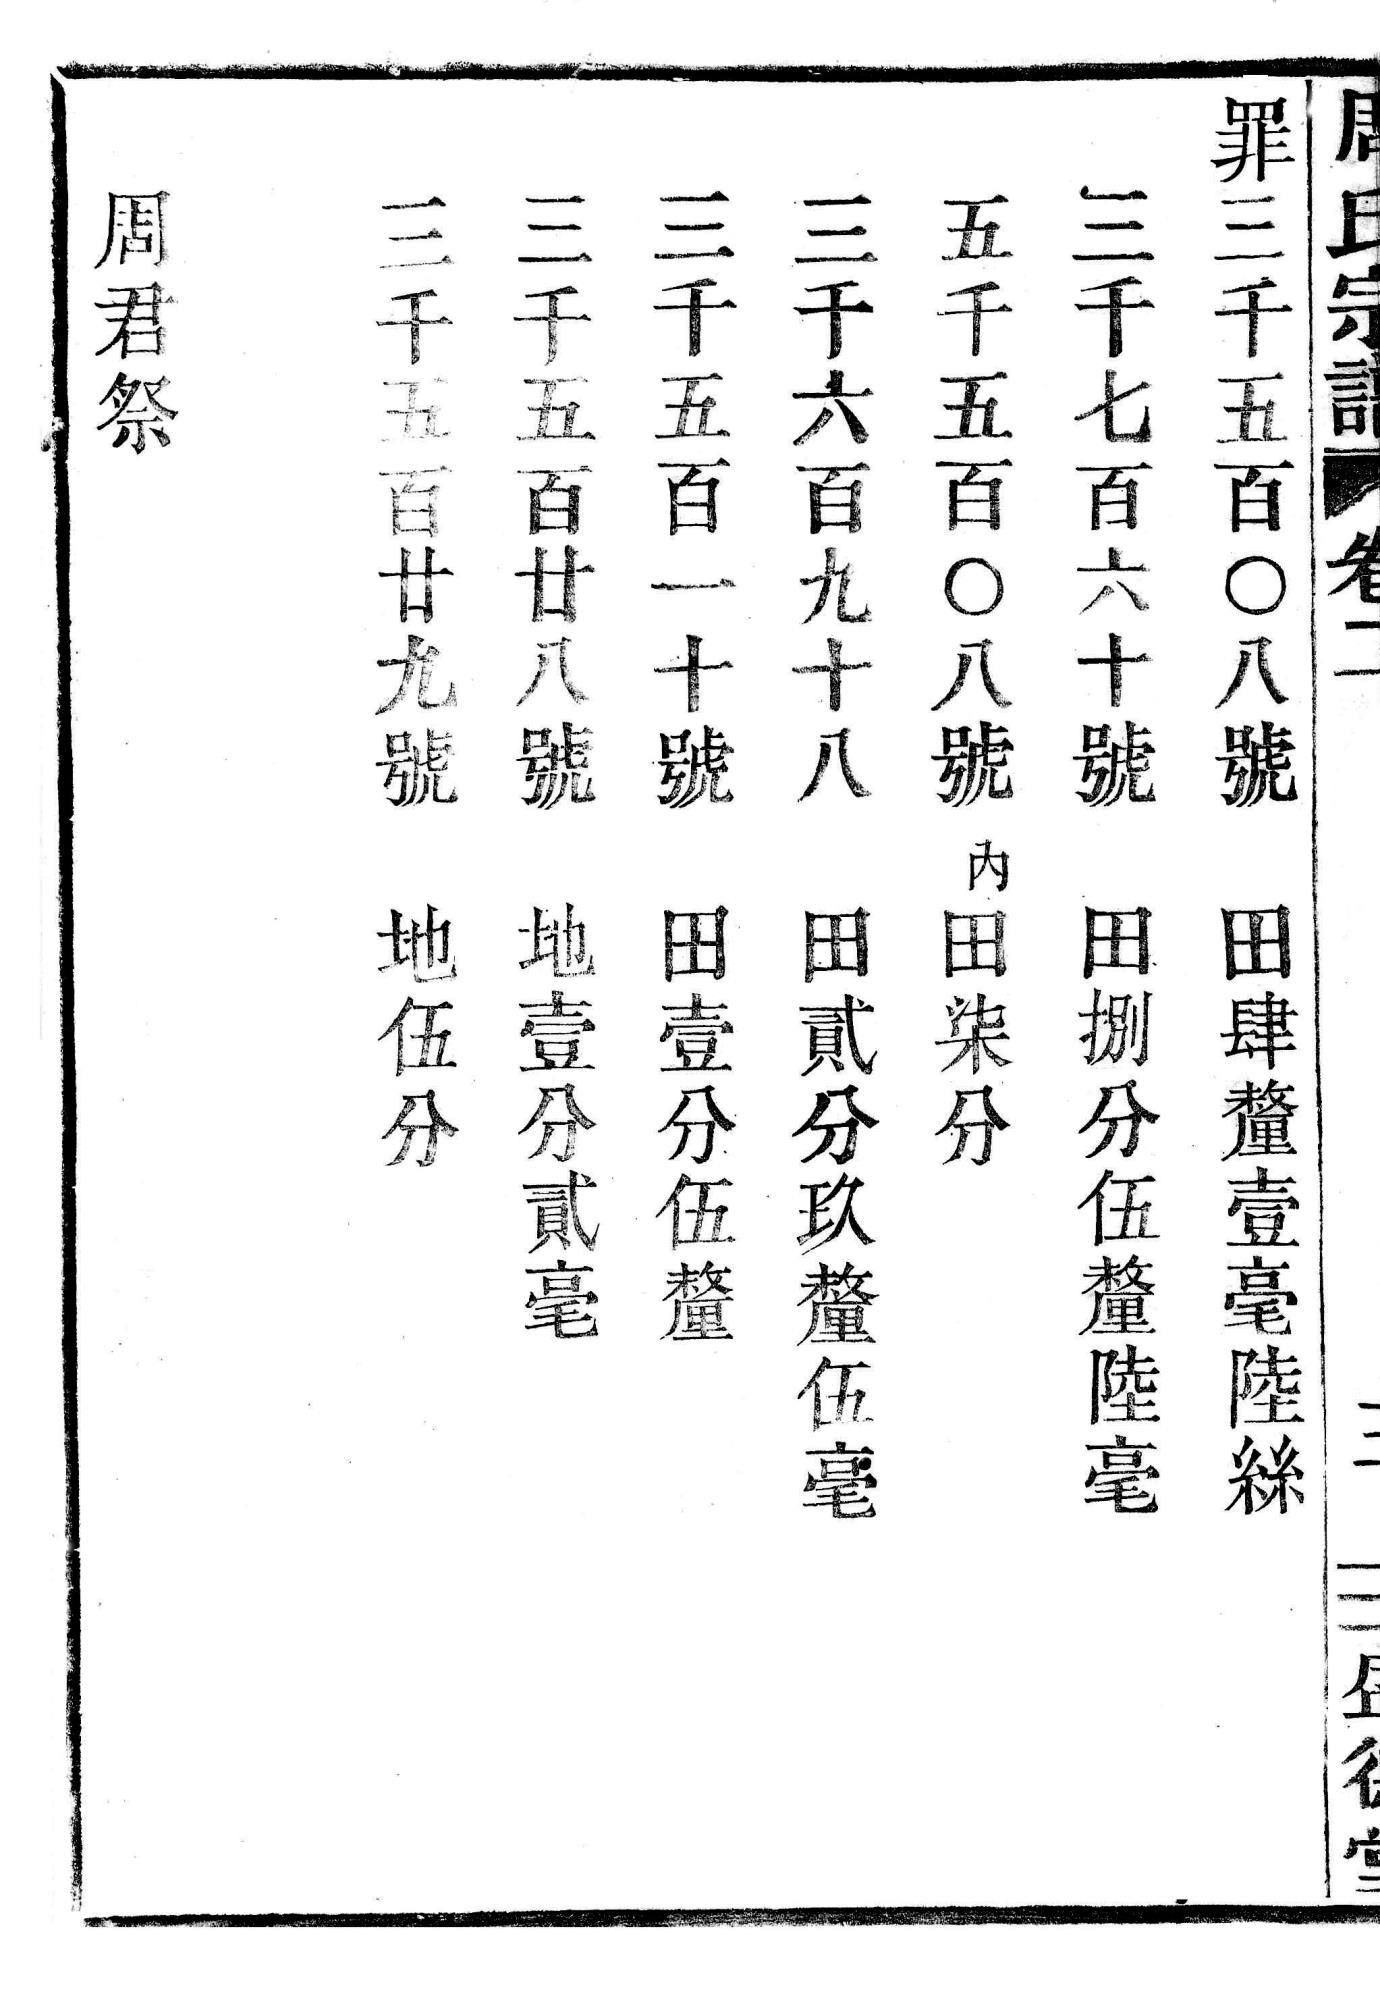 周氏宗譜 卷二 三 盛德堂
罪三千五百〇八號 田肆釐壹毫陸絲
三千七百六十號 田捌分伍釐陸毫
五千五百〇八號 內田柒分
三千六百九十八 田貳分玖釐伍毫
三千五百一十號 田壹分伍釐
三千五百廿八號 地壹分貳毫
三千五百廿九號 地伍分
周君祭